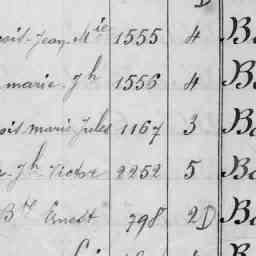 D
Jean Mie 1555 4 B
marie Jh 1556 4 B
ois marie Jules 1167 3 Bo
Jh Victor 2252 5 Ba
Bte Ernest 798 2D Bo